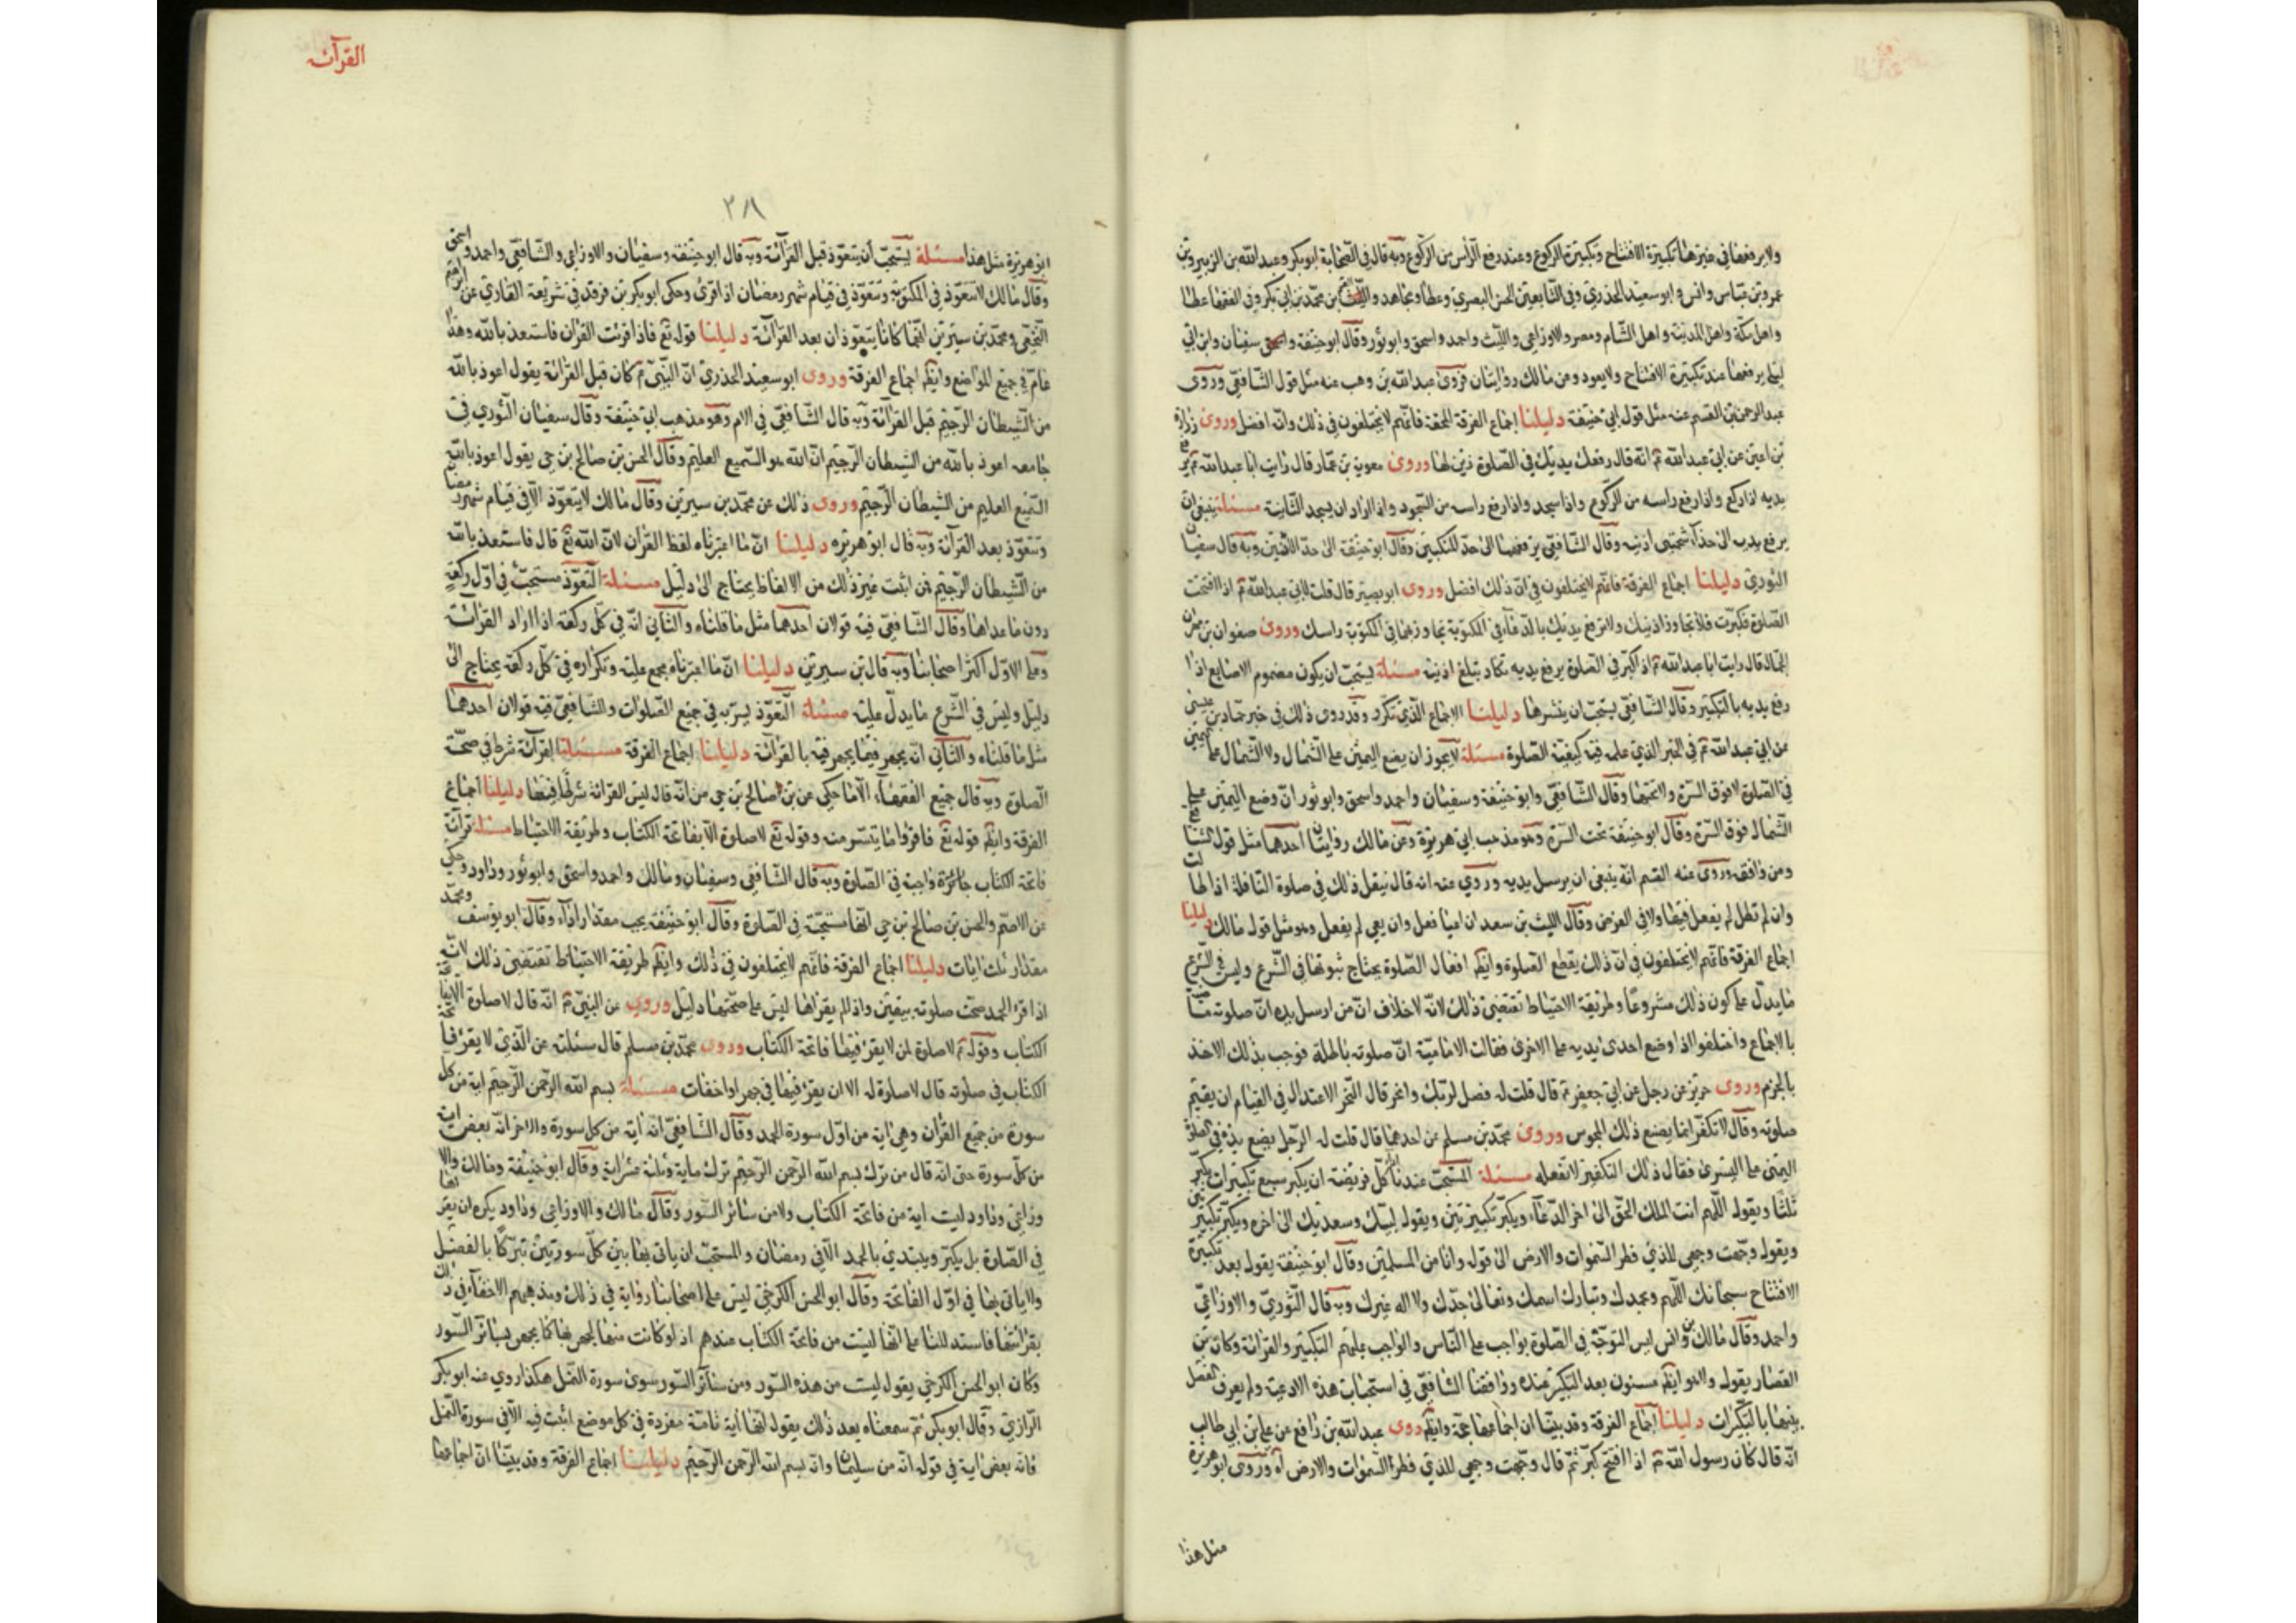 ولا يرفعها في غيرها تكبيرة الافتتاح وتكبيرة الركوع وعند رفع الرأس من الركوع وبه قال في الصحابة ابو بكر وعبد الله بن الزبير وبن
عمر وبن عباس وانس وابو سعيد الخدري وفي التابعين الحسن البصري وعطا ومجاهد والقسم بن محمد بن ابي بكر وفي الفقها عطا
واهل مكة واهل المدينة واهل الشام ومصر والاوزاعي والليث واحمد واسحق وابو ثور وقال ابو حنيفة سفيان وابن ابي
ليلى يرفعها عند تكبيرة الافتتاح ولا يعود وعن مالك روايتان فروى عبد الله بن وهب عنه مثل قول الشافعي وروى
عبد الرحمن بن القسم عنه مثل قول ابي حنيفة دليلنا اجماع الفرقة المحقة فانهم لا يختلفون في ذلك وانه افضل وروى زرارة
بن اعين عن ابي عبد الله ع انه قال رفعك يديك في الصلوة زين لها وروى معوية بن عمار قال رايت ابا عبد الله ع يرفع
يديه اذا ركع واذا رفع راسه من الركوع واذا سجد واذا رفع راسه من السجود واذا اراد ان يسجد الثانية مسئلة ينبغي ان
يرفع يديه الى حذا شحمتى اذنيه وقال الشافعي يرفعهما الى حد المنكبين وقال ابو حنيفة الى حد الاذنين وبه قال سفيان
الثوري دليلنا اجماع الفرقة فانهم لا يختلفون في ان ذلك افضل وروى ابو بصير قال قلت لابي عبد الله ع اذا افتتحت
الصلوة فكبرت فلا تجاوز اذنيك ولا ترفع يديك بالدعاء في المكتوبة تجاوز بهما في المكتوبة راسك وروى صفوان بن مهران
الجمال قال رايت ابا عبد الله ع اذا كبر في الصلوة يرفع يديه تكاد تبلغ اذنيه مسئلة يستحب ان يكون مضموم الاصابع اذا
رفع يديه بالتكبير وقال الشافعي يستحب ان ينشرها دليلنا الاجماع الذي تكرر وقد روى ذلك في خبر حماد بن عيسى
عن ابي عبد الله ع في الخبر الذي علمه فيه كيفية الصلوة مسئلة لا يجوز ان يضع اليمين على الشمال ولا الشمال على اليمين
في الصلوة لا فوق السرة ولا تحتها وقال الشافعي وابو حنيفة وسفيان واحمد واسحق وابو ثور ان وضع اليمين على
الشمال فوق السرة وقال ابو حنيفة تحت السرة وهو مذهب ابي هريرة وعن مالك روايتان احدهما مثل قول الشافعي
ومن وافقه وروى عنه القسم انه ينبغي ان يرسل يديه وروى عنه انه قال نيفعل ذلك في صلوة النافلة اذا طالت
وان لم تطل لم يفعل فيها ولا في الفرض وقال الليث بن سعد ان اعيا فعل وان يعي لم يفعل وهو مثل قول مالك دليلنا
اجماع الفرقة فانهم لا يختلفون في ان ذلك يقطع الصلوة وايضا افعال الصلوة يحتاج ثبوتها في الشرع وليس في الشرع
ما يدل على كون ذلك مشروعا وطريقة الاحتياط تقتضي ذلك لانه لا خلاف ان من ارسل يده ان صلوته ماضية
بالاجماع واختلفوا اذا وضع احدى يديه على الاخرى فقالت الامامية ان صلوته باطلة فوجب بذلك الاخذ
بالجزم وروى حريز عن رجل عن ابي جعفر ع قال قلت له فصل لربك وانحر قال النحر الاعتدال في القيام ان يقيم
صلوته وقال لا تكفر انما يصنع ذلك المجوس وروى محمد بن مسلم عن احدهما قال قلت له الرجل يضع يده في الصلوة
اليمنى على اليسرى فقال ذلك التكفير لا تفعله مسئلة المستحب عندنا كل فريضة ان يكبر سبع تكبيرات يكبر
ثلثا ويقول اللهم انت الملك الحق الى اخر الدعاء ويكبر تكبيرتين ويقول لبيك وسعديك الى اخره ويكبر تكبيرتين
ويقول وجهت وجهي للذي فطر السموات والارض الى قوله وانا من المسلمين وقال ابو حنيفة يقول بعد تكبيرة
الافتتاح سبحانك اللهم وبحمدك وتبارك اسمك وتعالى جدك ولا اله غيرك وبه قال الثوري والاوزاعي
واحمد وقال مالك بن انس ليس التوجه في الصلوة بواجب على الناس والواجب عليهم التكبير والقرائة وكان بن
القصار يقول والدعا ايضا مسنون بعد التكبير عنده ووافقنا الشافعي في استحباب هذه الادعية ولم يعرف الفصل
بينهما بالتكبيرات دليلنا اجماع الفرقة وقد بينا ان اجماعها حجة وايضا روى عبد الله بن رافع عن علي بن ابي طالب
انه قال كان رسول الله ص اذا افتتح كبر ثم قال وجهت وجهي للذي فطر السموات والارض اه وروى ابو هريرة
مثل هذا
القرآئة
٣٨١
ابو هريرة مثل هذا مسئلة يستحب أن يتعوذ قبل القرآئة وبه قال ابو حنيفة وسفيان والاوزاعي والشافعي واحمد واسحق
وقال مالك لا يتعوذ في المكتوبة ويتعوذ في قيام شهر رمضان اذا قرئ وحكى ابو بكر بن في شريعة القاري عن ابراهيم
النخعي ومحمد بن سيرين انهما كانا يتعوذان بعد القرآئة دليلنا قوله تع فاذا قرئت القران فاستعذ بالله وهذا
عام في جميع المواضع وايضا اجماع الفرقة وروى ابو سعيد الخدري ان النبي ص كان قبل القرائة يقول اعوذ بالله
من الشيطان الرجيم قبل القرآئة وبه قال الشافعي في الام وهو مذهب ابي حنيفة وقال سفيان الثوري في
جامعه اعوذ بالله من الشيطان الرجيم ان الله هو السميع العليم وقال الحسن بن صالح بن حي يقول اعوذ بالله
السميع العليم من الشيطان الرجيم وروى ذلك عن محمد بن سيرين وقال مالك لا يتعوذ الا في قيام شهر رمضان
ويتعوذ بعد القرآئة وبه قال ابو هريره دليلنا ان ما اعتبرناه لفظ القران لان الله تع قال فاستعذ بالله
من الشيطان الرجيم فمن اثبت غير ذلك من الالفاظ يحتاج الى دليل مسئلة التعوذ مستحب في اول ركعة
دون ما عداها وقال الشافعي فيه قولان احدهما مثل ما قلناه والثاني انه في كل ركعة اذا اراد القرائة
وعلى الاول اكثر اصحابنا وبه قال بن سيرين دليلنا ان ما اعتبرناه مجمع عليه وتكراره في كل ركعة يحتاج الى
دليل وليس في الشرع ما يدل عليه مسئلة التعوذ يسر به في جميع الصلوات وللشافعي فيه قولان احدهما
مثل ما قلناه والثاني انه يجهر فيما يجهر فيه بالقرائة دليلنا اجماع الفرقة مسئلة القرآئة شرط في صحة
الصلوة وبه قال جميع الفقهاء الا ما حكي عن بن صالح بن حي من انه قال ليس القرائة شرطا فيها دليلنا اجماع
الفرقة وايضا قوله تع فاقرؤا ما يتسر منه وقوله تع لا صلوة الا بفاتحة الكتاب وطريقة الاحتياط مسئلة قرآئة
فاتحة الكتاب جائزة واجبة في الصلوة وبه قال الشافعي وسفيان ومالك واحمد واسحق وابو ثور وداود وحكي
عن الاصم والحسن بن صالح بن حي انها مستحبة في الصلوة وقال ابو حنيفة يجب مقدار اية وقال ابو يوسف ومحمد
مقدار ثلث ايات دليلنا اجماع الفرقة فانهم لا يختلفون في ذلك وايضا طريقة الاحتياط تقتضى ذلك لانه
اذا قرا الحمد صحت صلوته بيقين واذا لم يقراها ليس على صحتها دليل وروي عن النبي ص انه قال لا صلوة الا بفاتحة
الكتاب وقوله ص لا صلوة لمن لا يقرا فيها فاتحة الكتاب وروى محمد بن مسلم قال سئلته عن الذي لا يقرء فاتحة
الكتاب في صلوته قال لا صلوة له الا ان يقرء فيها في جهر او اخفات مسئلة بسم الله الرحمن الرحيم اية من كل
سورة من جميع القران وهي اية من اول سورة الحمد وقال الشافعي انه اية من كل سورة والاخر انه بعض اية
من كل سورة حتى انه قال من ترك بسم الله الرحمن الرحيم ترك ماية وثلثة عشر اية وقال ابو حنيفة ومالك والا
وزاعي وداود ليست اية من فاتحة الكتاب ولا من سائر السور وقال مالك والاوزاعي وداود يكره ان يقرأها
في الصلوة بل يكبر ويبتدئ بالحمد الا في رمضان والمستحب ان ياتي بها بين كل سورتين تبركا بالفصل
ولا ياتي بها في اول الفاتحة وقال ابو الحسن الكرخي ليس على اصحابنا رواية في ذلك ومذهبهم الاخفاء في ذلك
بقرائتها فاستدللنا على انها ليست من فاتحة الكتاب عندهم اذ لو كانت منها لجهر بها كما يجهر بسائر السور
وكان ابو الحسن الكرخي يقول ليست من هذه السور ومن سائر السور سوى سورة النمل هكذا روي عنه ابو بكر
الرازي وقال ابو بكر ثم سمعناه بعد ذلك يقول انها اية تامة مفردة في كل موضع اثبت فيه الا في سورة النمل
فانه بعض اية في قوله انه من سليمان وانه بسم الله الرحمن الرحيم دليلنا اجماع الفرقة وقد بينا ان اجماعها